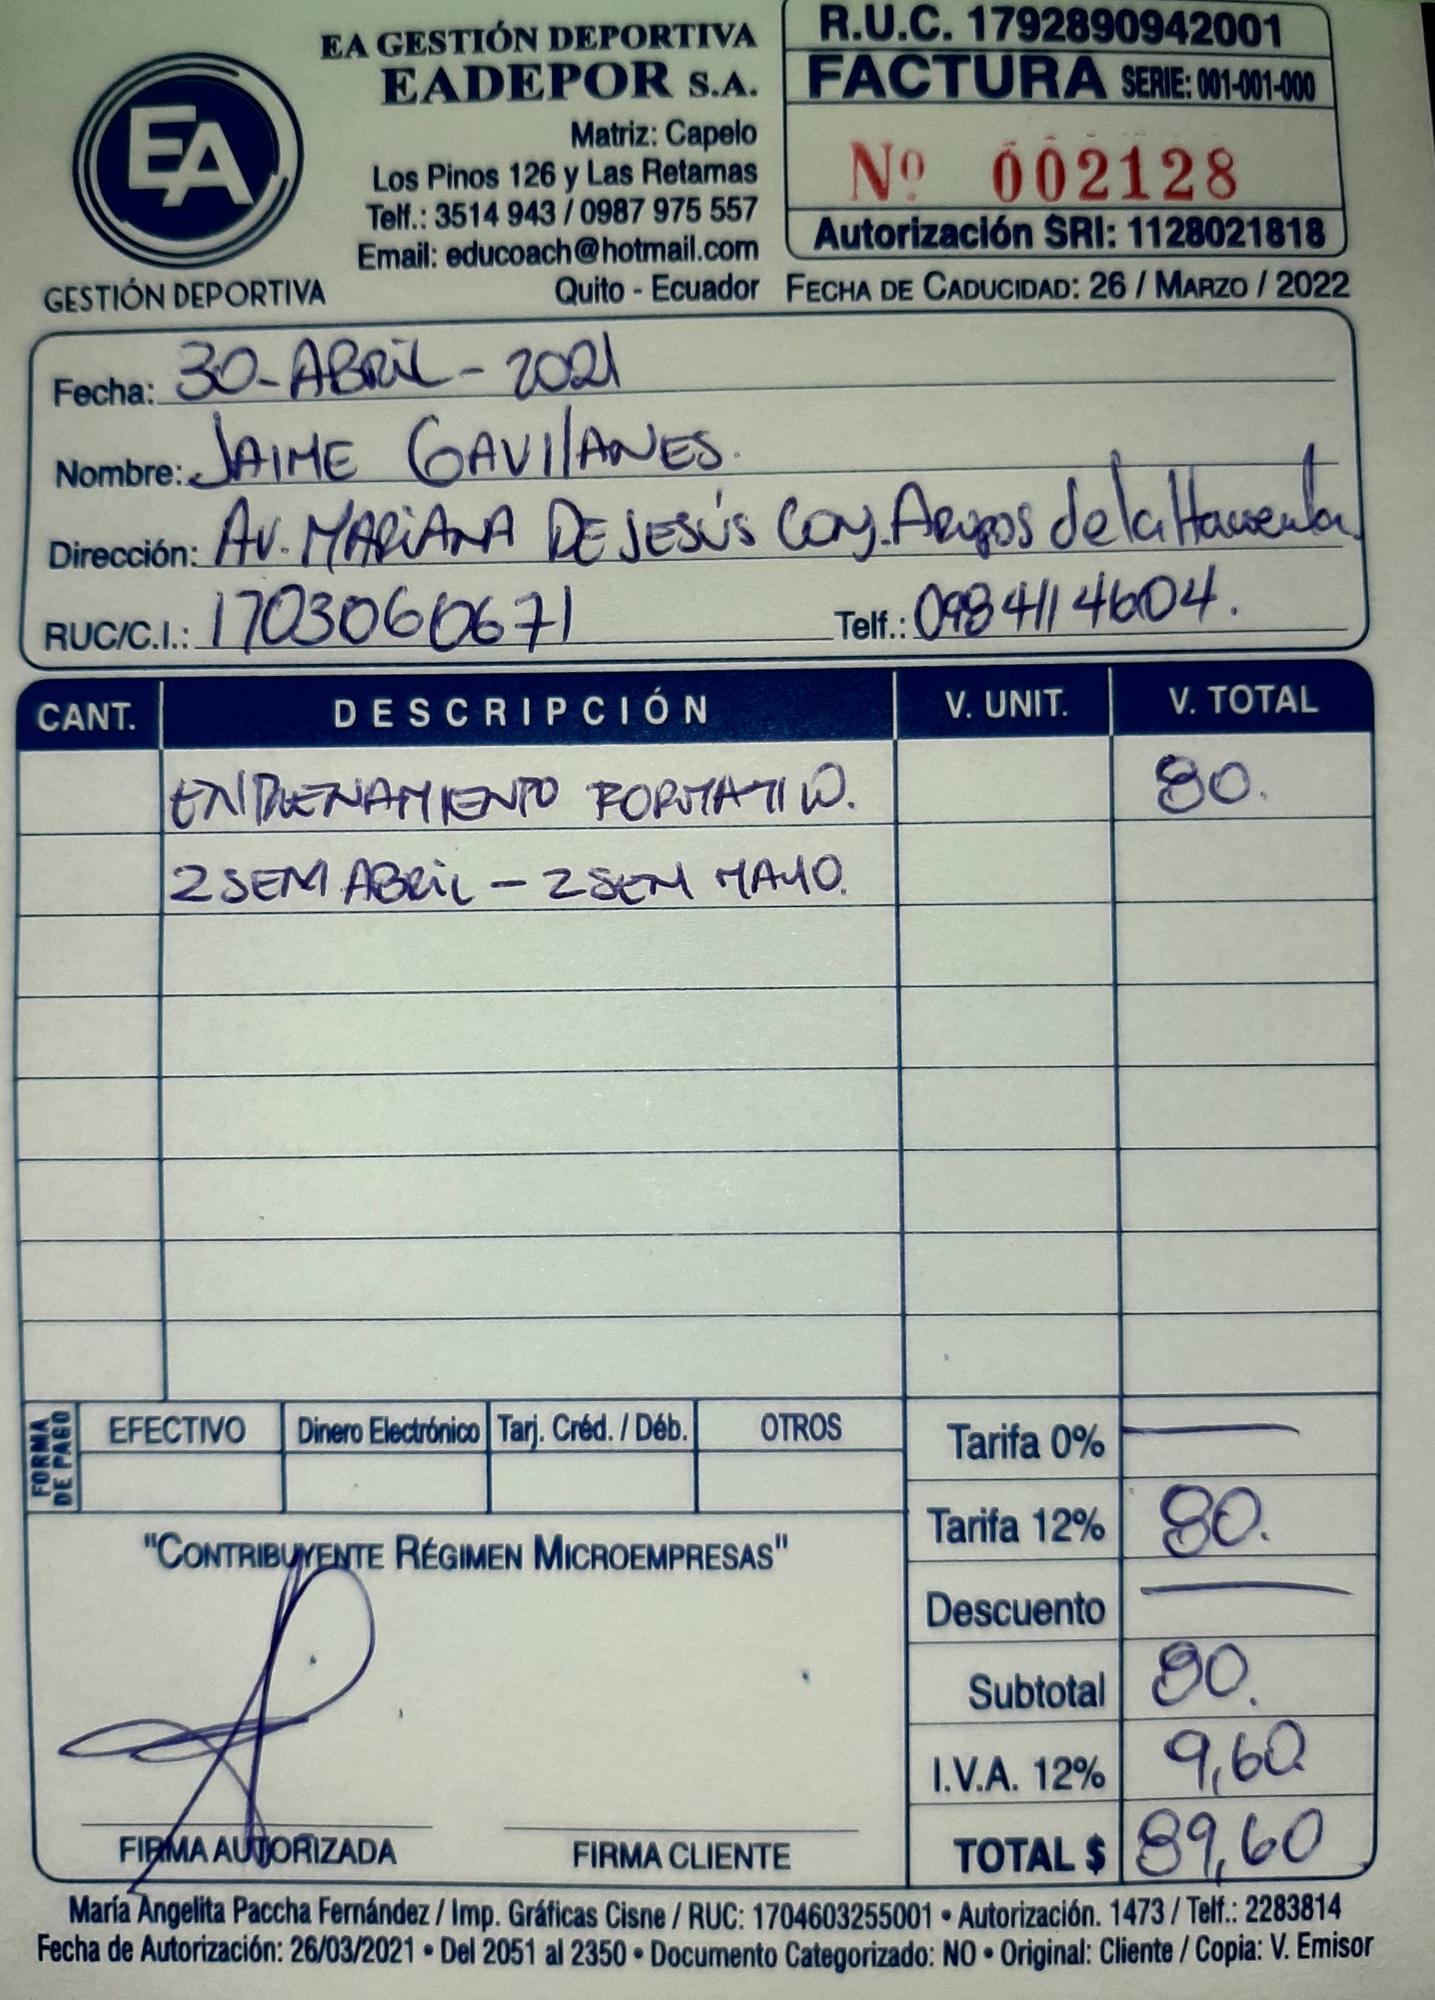 EA GESTIÓN DEPORTIVA
EADEPOR S.A.
Matriz: Capelo
Los Pinos 126 y Las Retamas
Telf.: 3514 943 / 0987 975 557
Email: educoach@hotmail.com
Quito - Ecuador
EA
GESTIÓN DEPORTIVA
R.U.C. 1792890942001
FACTURA SERIE: 001-001-000
Nº 002128
Autorización SRI: 1128021818
FECHA DE CADUCIDAD: 26 / MARZO / 2022
Fecha: 30-ABRIL-2021
Nombre: JAIME GAVILANES.
Dirección: AV. MARIANA DE JESÚS Conj. Arupos de la Hacienda
RUC/C.I.: 1703060671 Telf.: 0984114604.
CANT. DESCRIPCIÓN V. UNIT. V. TOTAL
ENTRENAMIENTO FORMATIVO. 80.
2 SEM ABRIL - 2 SEM MAYO.
FORMA DE PAGO
EFECTIVO Dinero Electrónico Tarj. Créd. / Déb. OTROS
Tarifa 0% —
Tarifa 12% 80.
Descuento —
Subtotal 80.
I.V.A. 12% 9,60
TOTAL $ 89,60
"CONTRIBUYENTE RÉGIMEN MICROEMPRESAS"
FIRMA AUTORIZADA FIRMA CLIENTE
María Angelita Paccha Fernández / Imp. Gráficas Cisne / RUC: 1704603255001 • Autorización. 1473 / Telf.: 2283814
Fecha de Autorización: 26/03/2021 • Del 2051 al 2350 • Documento Categorizado: NO • Original: Cliente / Copia: V. Emisor